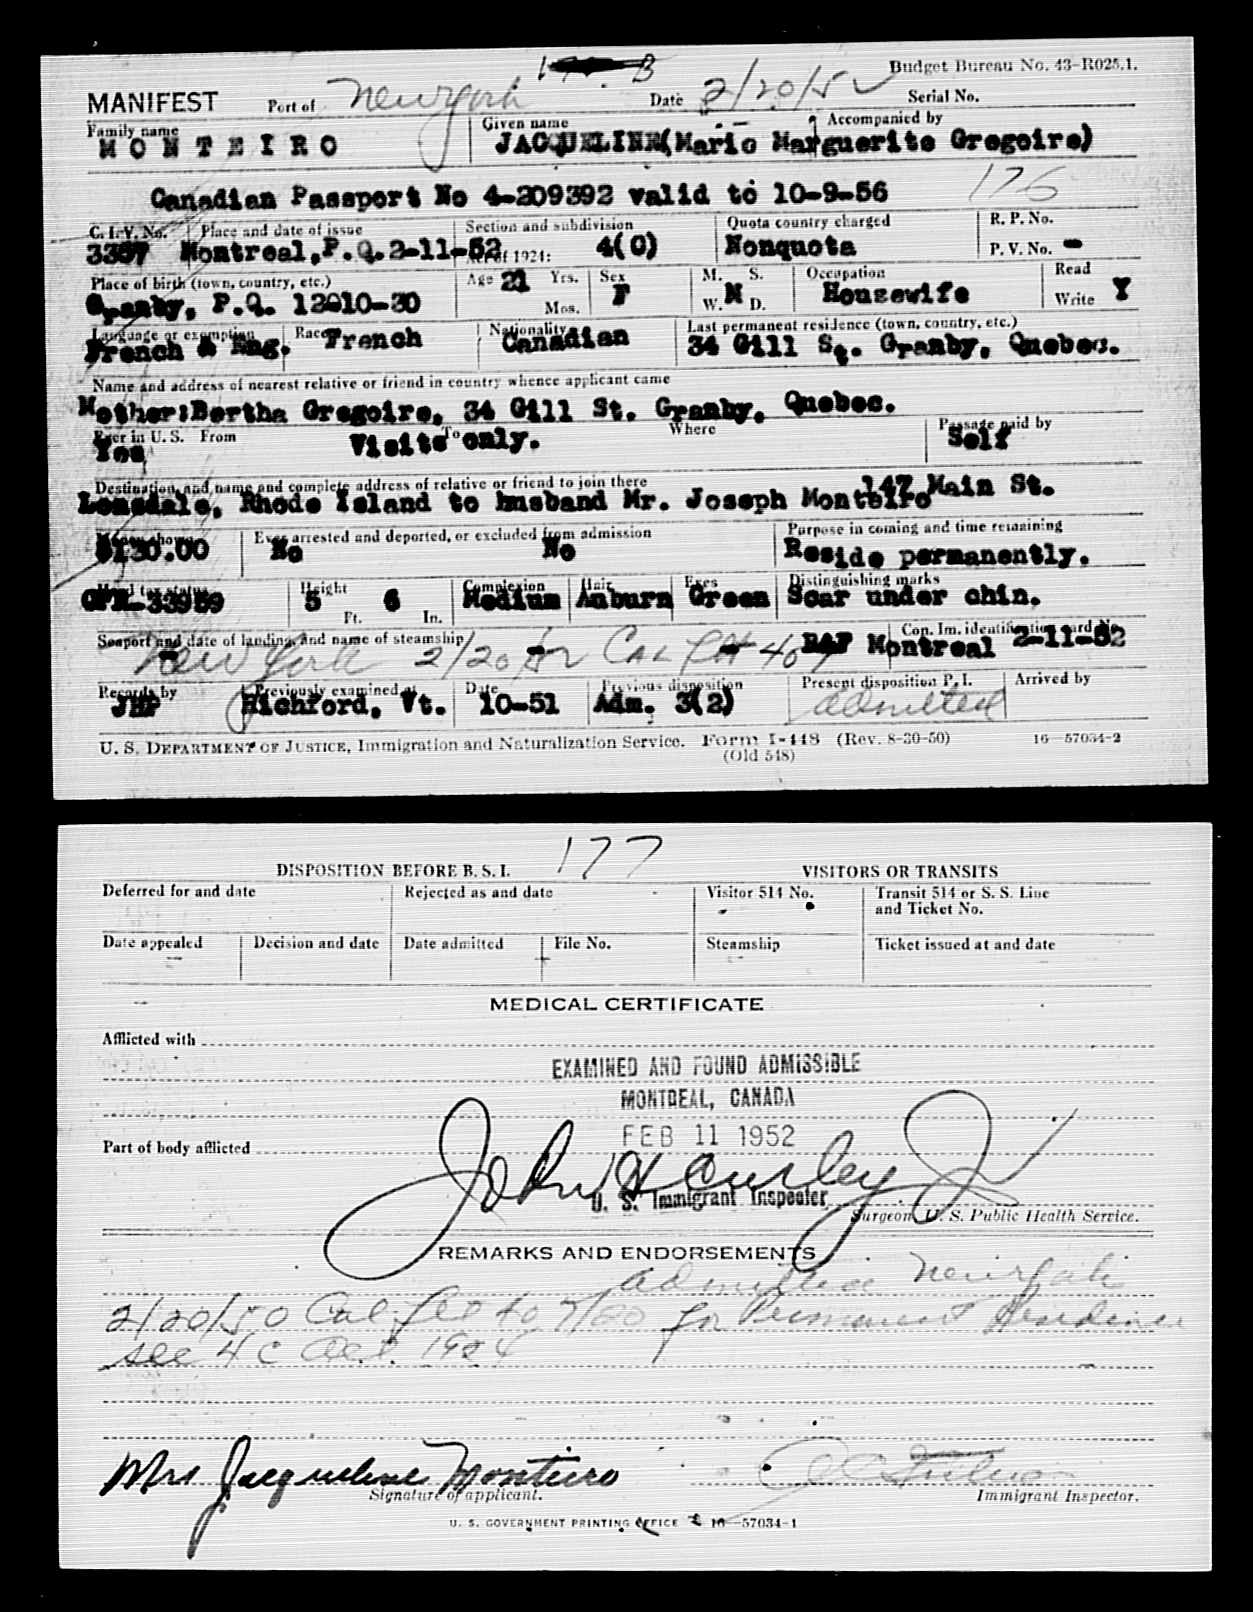 B
Budget Bureau No. 43-R025.1.
MANIFEST Port of New York Date 2/20/52 Serial No.
Family name Given name Accompanied by
MONTEIRO JACQUELINE(Marie Marguerite Gregoire)
Canadian Passport No 4-209392 valid to 10-9-56 176
C. I. V. No. Place and date of issue Section and subdivision Quota country charged R. P. No.
3357 Montreal,P.Q.2-11-52 Act of 1924: 4(C) Nonquota P. V. No. -
Place of birth (town, country, etc.) Age 21 Yrs. Sex M. S. Occupation Read
Granby, P.Q. 12-10-30 Mos. F W. M D. Housewife Write Y
Language or exemption Race Nationality Last permanent residence (town, country, etc.)
French & Eng. French Canadian 34 Gill St. Granby, Quebec.
Name and address of nearest relative or friend in country whence applicant came
Mother:Bertha Gregoire, 34 Gill St. Granby, Quebec.
Ever in U. S. From To Where Passage paid by
Yes Visits only. Self
Destination, and name and complete address of relative or friend to join there
Lonsdale, Rhode Island to husband Mr. Joseph Monteiro 147 Main St.
Money shown Ever arrested and deported, or excluded from admission Purpose in coming and time remaining
$130.00 No No Reside permanently.
Head tax status Height Complexion Hair Eyes Distinguishing marks
GPM-33959 5 Ft. 6 In. Medium Auburn Green Scar under chin.
Seaport and date of landing, and name of steamship Con. Im. identification card No.
New York 2/20/52 Cal Flt 407 Montreal 2-11-52
Records by Previously examined at Date Previous disposition Present disposition P. I. Arrived by
JHP Richford, Vt. 10-51 Adm. 3(2) admitted
U. S. DEPARTMENT OF JUSTICE, Immigration and Naturalization Service. Form I-448 (Rev. 8-30-50) 16—57034-2
(Old 548)
177
DISPOSITION BEFORE B. S. I. VISITORS OR TRANSITS
Deferred for and date Rejected as and date Visitor 514 No. Transit 514 or S. S. Line
and Ticket No.
Date appealed Decision and date Date admitted File No. Steamship Ticket issued at and date
MEDICAL CERTIFICATE
Afflicted with
EXAMINED AND FOUND ADMISSIBLE
MONTREAL, CANADA
Part of body afflicted FEB 11 1952
John H Curley Jr
U. S. Immigrant Inspector
Surgeon U. S. Public Health Service.
REMARKS AND ENDORSEMENTS
admitted New York
2/20/50 Cal for Permanent Residence
see 4 C Act. 1924
Mrs Jacqueline Monteiro
Signature of applicant. Immigrant Inspector.
U. S. GOVERNMENT PRINTING OFFICE 16—57034-1